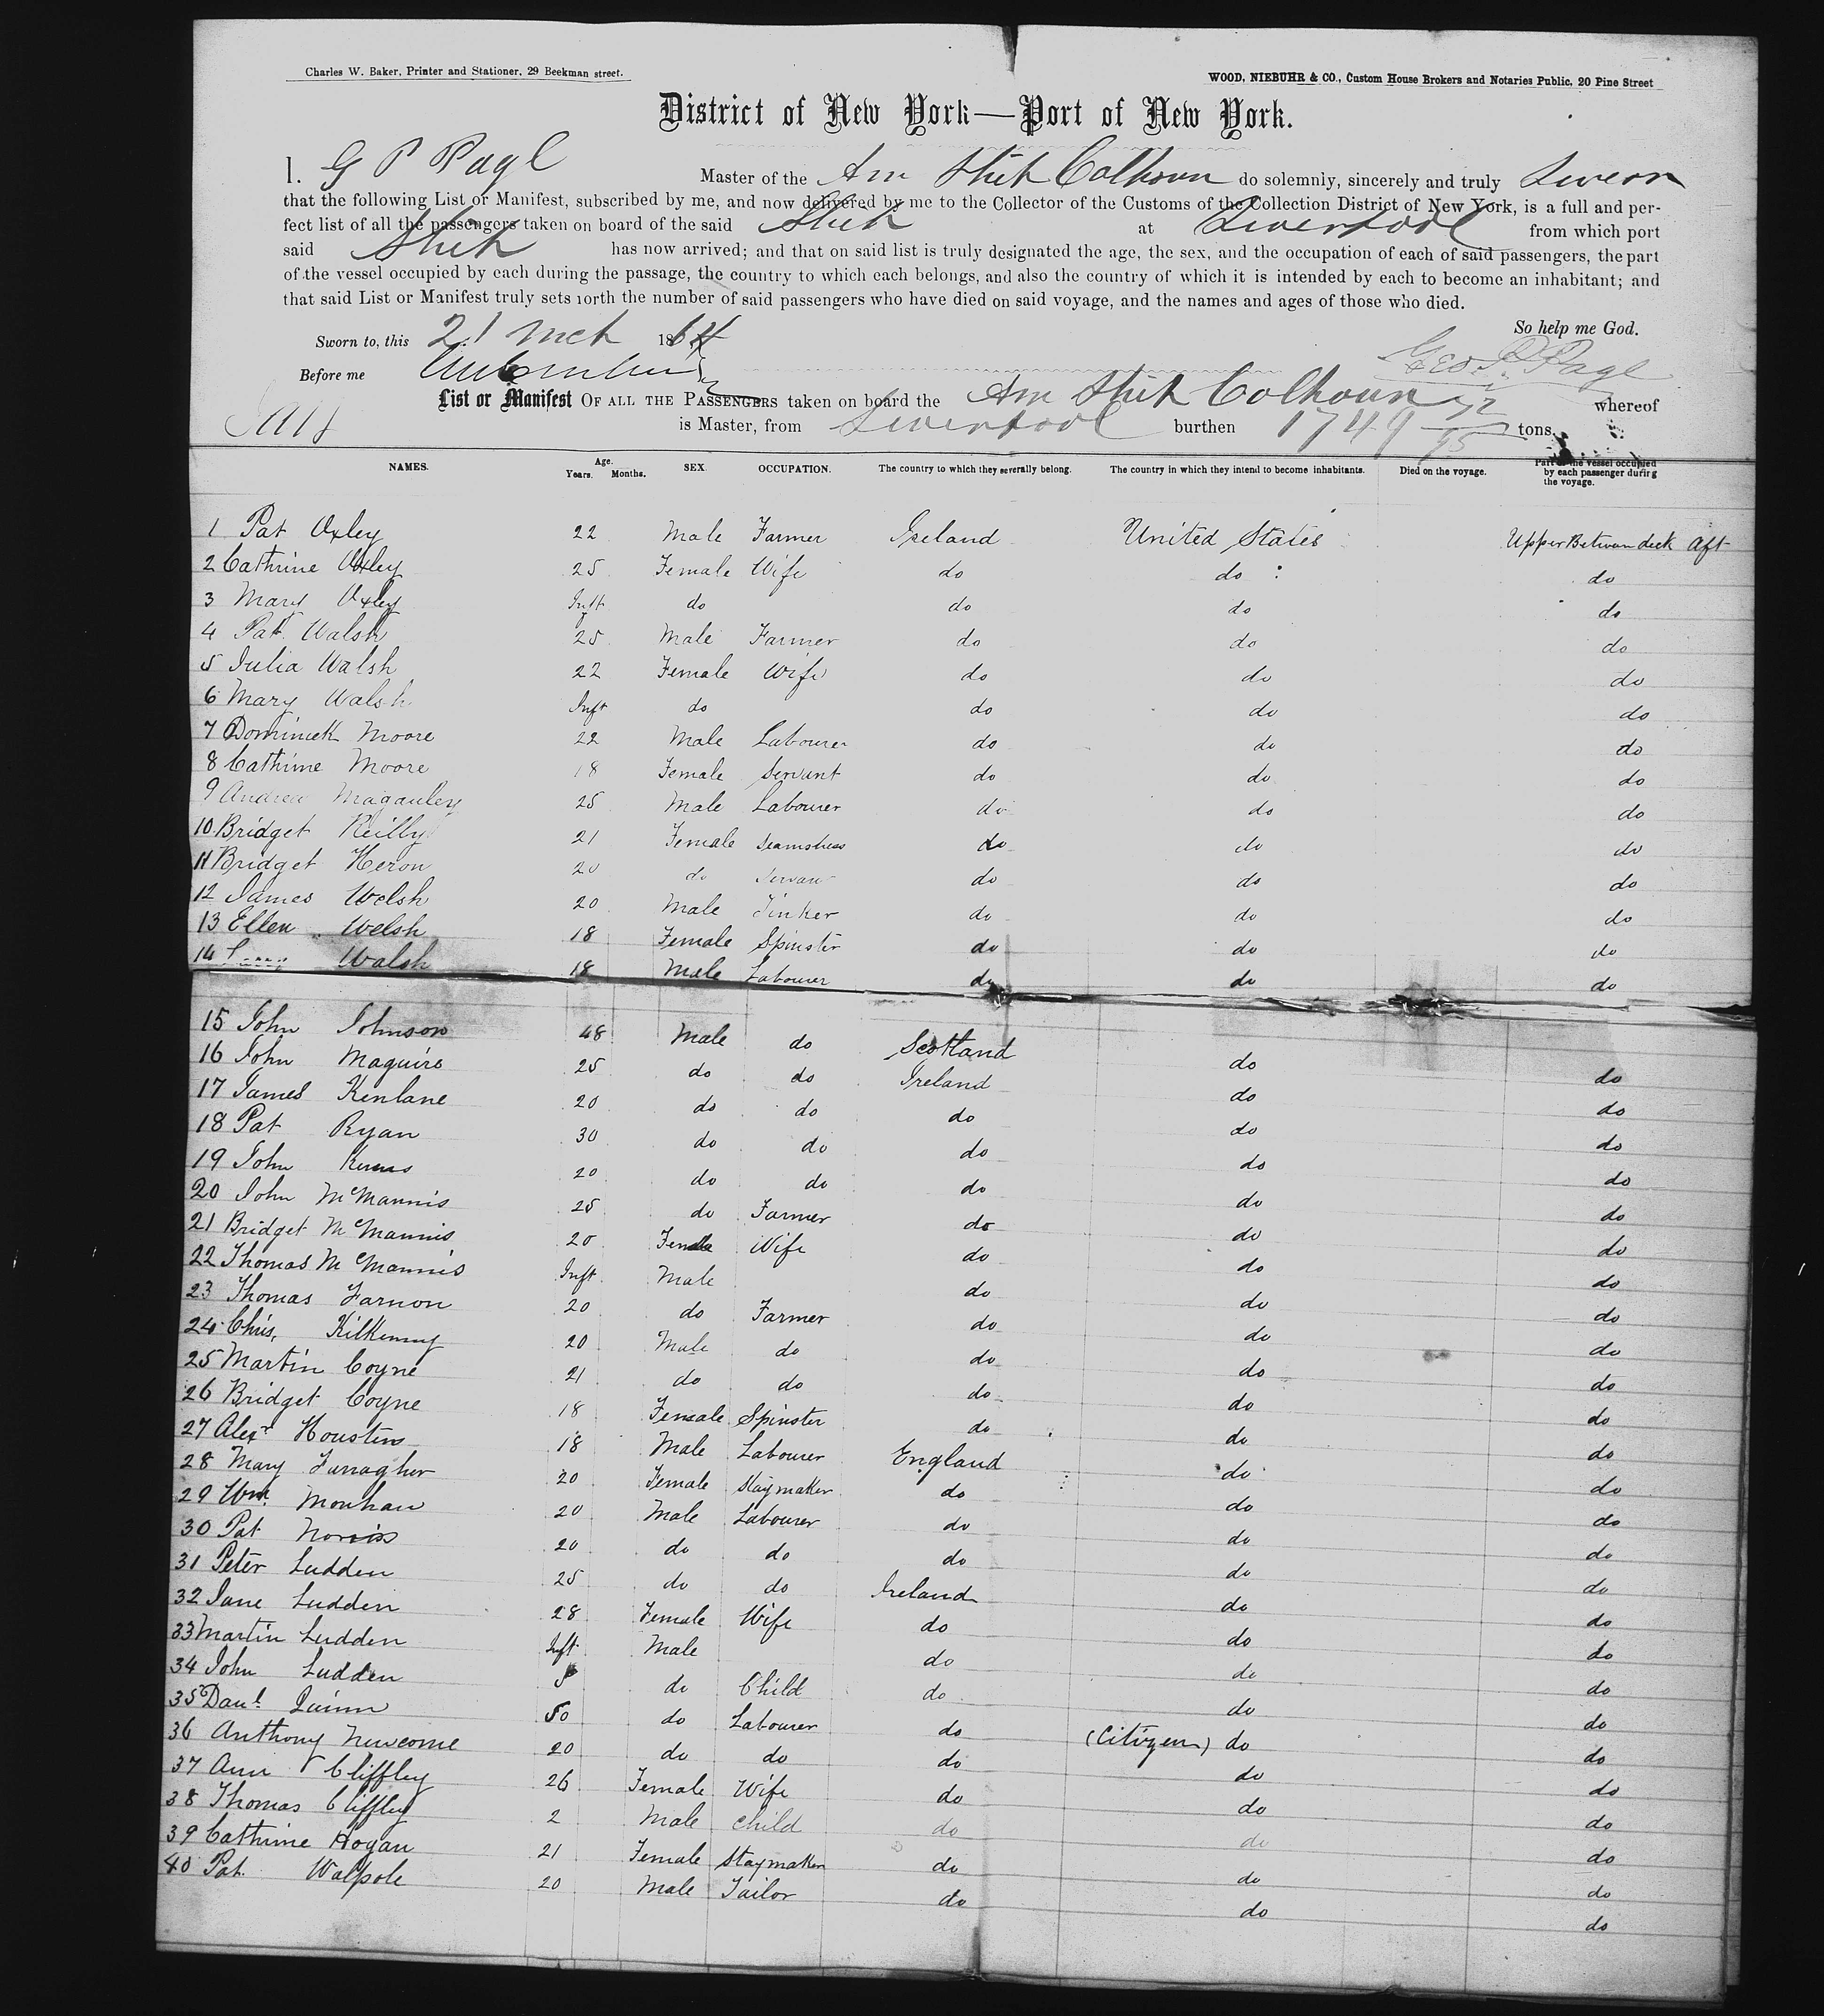 Charles W. Baker, Printer and Stationer, 29 Beekman street.
WOOD, NIEBUHR & CO., Custom House Brokers and Notaries Public, 20 Pine Street
District of New York—Port of New York.
I. G P Page Master of the Am Ship Calhoun do solemnly, sincerely and truly Swear
that the following List or Manifest, subscribed by me, and now delivered by me to the Collector of the Customs of the Collection District of New York, is a full and per-
fect list of all the passengers taken on board of the said Ship at Liverpool from which port
said Ship has now arrived; and that on said list is truly designated the age, the sex, and the occupation of each of said passengers, the part
of the vessel occupied by each during the passage, the country to which each belongs, and also the country of which it is intended by each to become an inhabitant; and
that said List or Manifest truly sets forth the number of said passengers who have died on said voyage, and the names and ages of those who died.
So help me God.
Sworn to, this 21 Mch 1864
Geo. P. Page
Before me
List or Manifest OF ALL THE PASSENGERS taken on board the Am Ship Calhoun whereof
is Master, from Liverpool burthen 1749 72/95 tons.
NAMES. Age. Years. Months. SEX. OCCUPATION. The country to which they severally belong. The country in which they intend to become inhabitants. Died on the voyage. Part of the vessel occupied by each passenger during the voyage.
1 Pat Oxley 22 Male Farmer Ireland United States Upper Betwen deck Aft
2 Cathrine Oxley 25 Female Wife do do do
3 Mary Oxley Inft do do do do
4 Pat Walsh 25 Male Farmer do do do
5 Julia Walsh 22 Female Wife do do do
6 Mary Walsh Inft do do do do
7 Dominick Moore 22 Male Labourer do do do
8 Cathrine Moore 18 Female Servant do do do
9 Andrew Magauley 25 Male Labourer do do do
10 Bridget Reilly 21 Female Seamstress do do do
11 Bridget Heron 20 do Servant do do do
12 James Welsh 20 Male Tinker do do do
13 Ellen Welsh 18 Female Spinster do do do
14 Walsh 18 Male Labourer do do do
15 John Johnson 48 Male do Scotland do do
16 John Maguire 25 do do Ireland do do
17 James Kenlane 20 do do do do do
18 Pat Ryan 30 do do do do do
19 John 20 do do do do do
20 John McMannis 25 do Farmer do do do
21 Bridget McMannis 20 Female Wife do do do
22 Thomas McMannis Inft Male do do do
23 Thomas Farnon 20 do Farmer do do do
24 Chris, Kilkenny 20 Male do do do do
25 Martin Coyne 21 do do do do do
26 Bridget Coyne 18 Female Spinster do do do
27 Alexr Houston 18 Male Labourer England do do
28 Mary Funagher 20 Female Staymaker do do do
29 Wm Monhan 20 Male Labourer do do do
30 Pat Norris 20 do do do do do
31 Peter Ludden 25 do do Ireland do do
32 Jane Ludden 28 Female Wife do do do
33 Martin Ludden Inft Male do do do
34 John Ludden do Child do do do
35 Danl Quinn 50 do Labourer do (Citizen) do do
36 Anthony Newcome 20 do do do do do
37 Ann Cliffley 26 Female Wife do do do
38 Thomas Cliffley 2 Male Child do do do
39 Cathrine Hogan 21 Female Staymaker do do do
40 Pat. Walpole 20 Male Tailor do do do